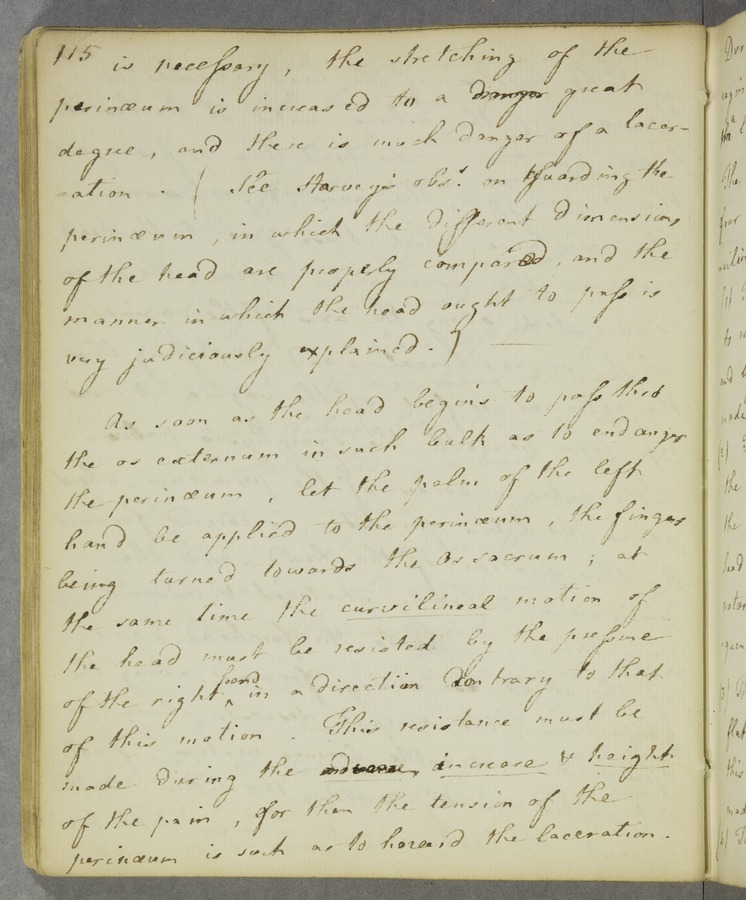 115 is necessary, the stretching of the
perinæum is increased to a danger great
degree, and there is much danger of a lacer-
-ation. ( See Harvey's obs.s on Guarding the
perinæum, in which the different dimensions
of the head are properly compared, and the
manner in which the head ought to pass is
very judiciously explained. )
As soon as the head begins to pass thro
the os externum in such bulk as to endanger
the perinæum, let the palm of the left
hand be applied to the perinæum, the fingers
being turned towards the os sacrum; at
the same time the curvilineal motion of
the head must be resisted by the pressure
of the right hand in a direction contrary to that
of this motion. This resistance must be
made during the increase & height
of the pain, for then the tension of the
perinæum is such as to hazard the laceration.